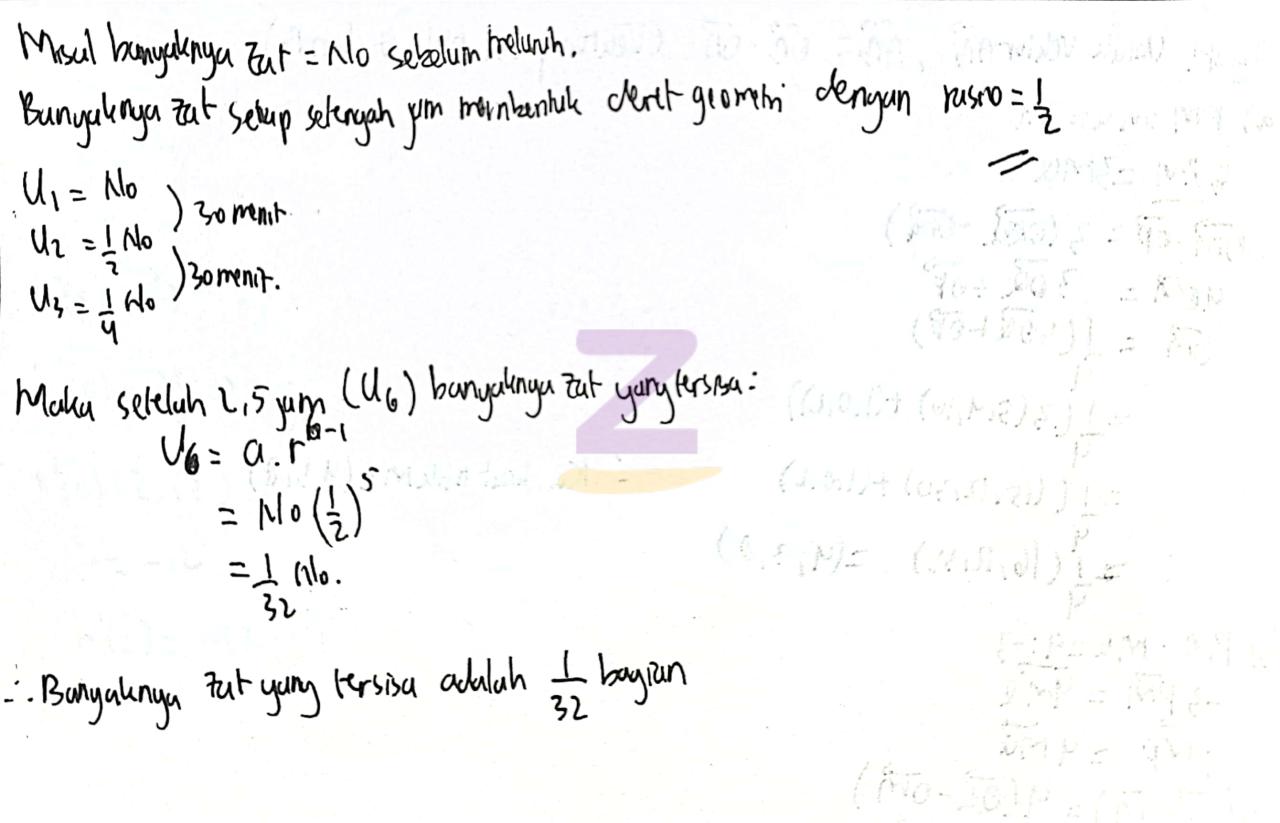 Misal banyaknya zat = No sebelum meluruh.
Banyaknya zat setiap setengah jam membentuk deret geometri dengan rasio = 1/2
U1 = No
) 30 menit
U2 = 1/2 No
) 30 menit.
U3 = 1/4 No
Maka setelah 2,5 jam (U6) banyaknya zat yang tersisa :
U6 = a.r^6-1
= No (1/2)^5
= 1/32 No.
∴ Banyaknya zat yang tersisa adalah 1/32 bagian
Z